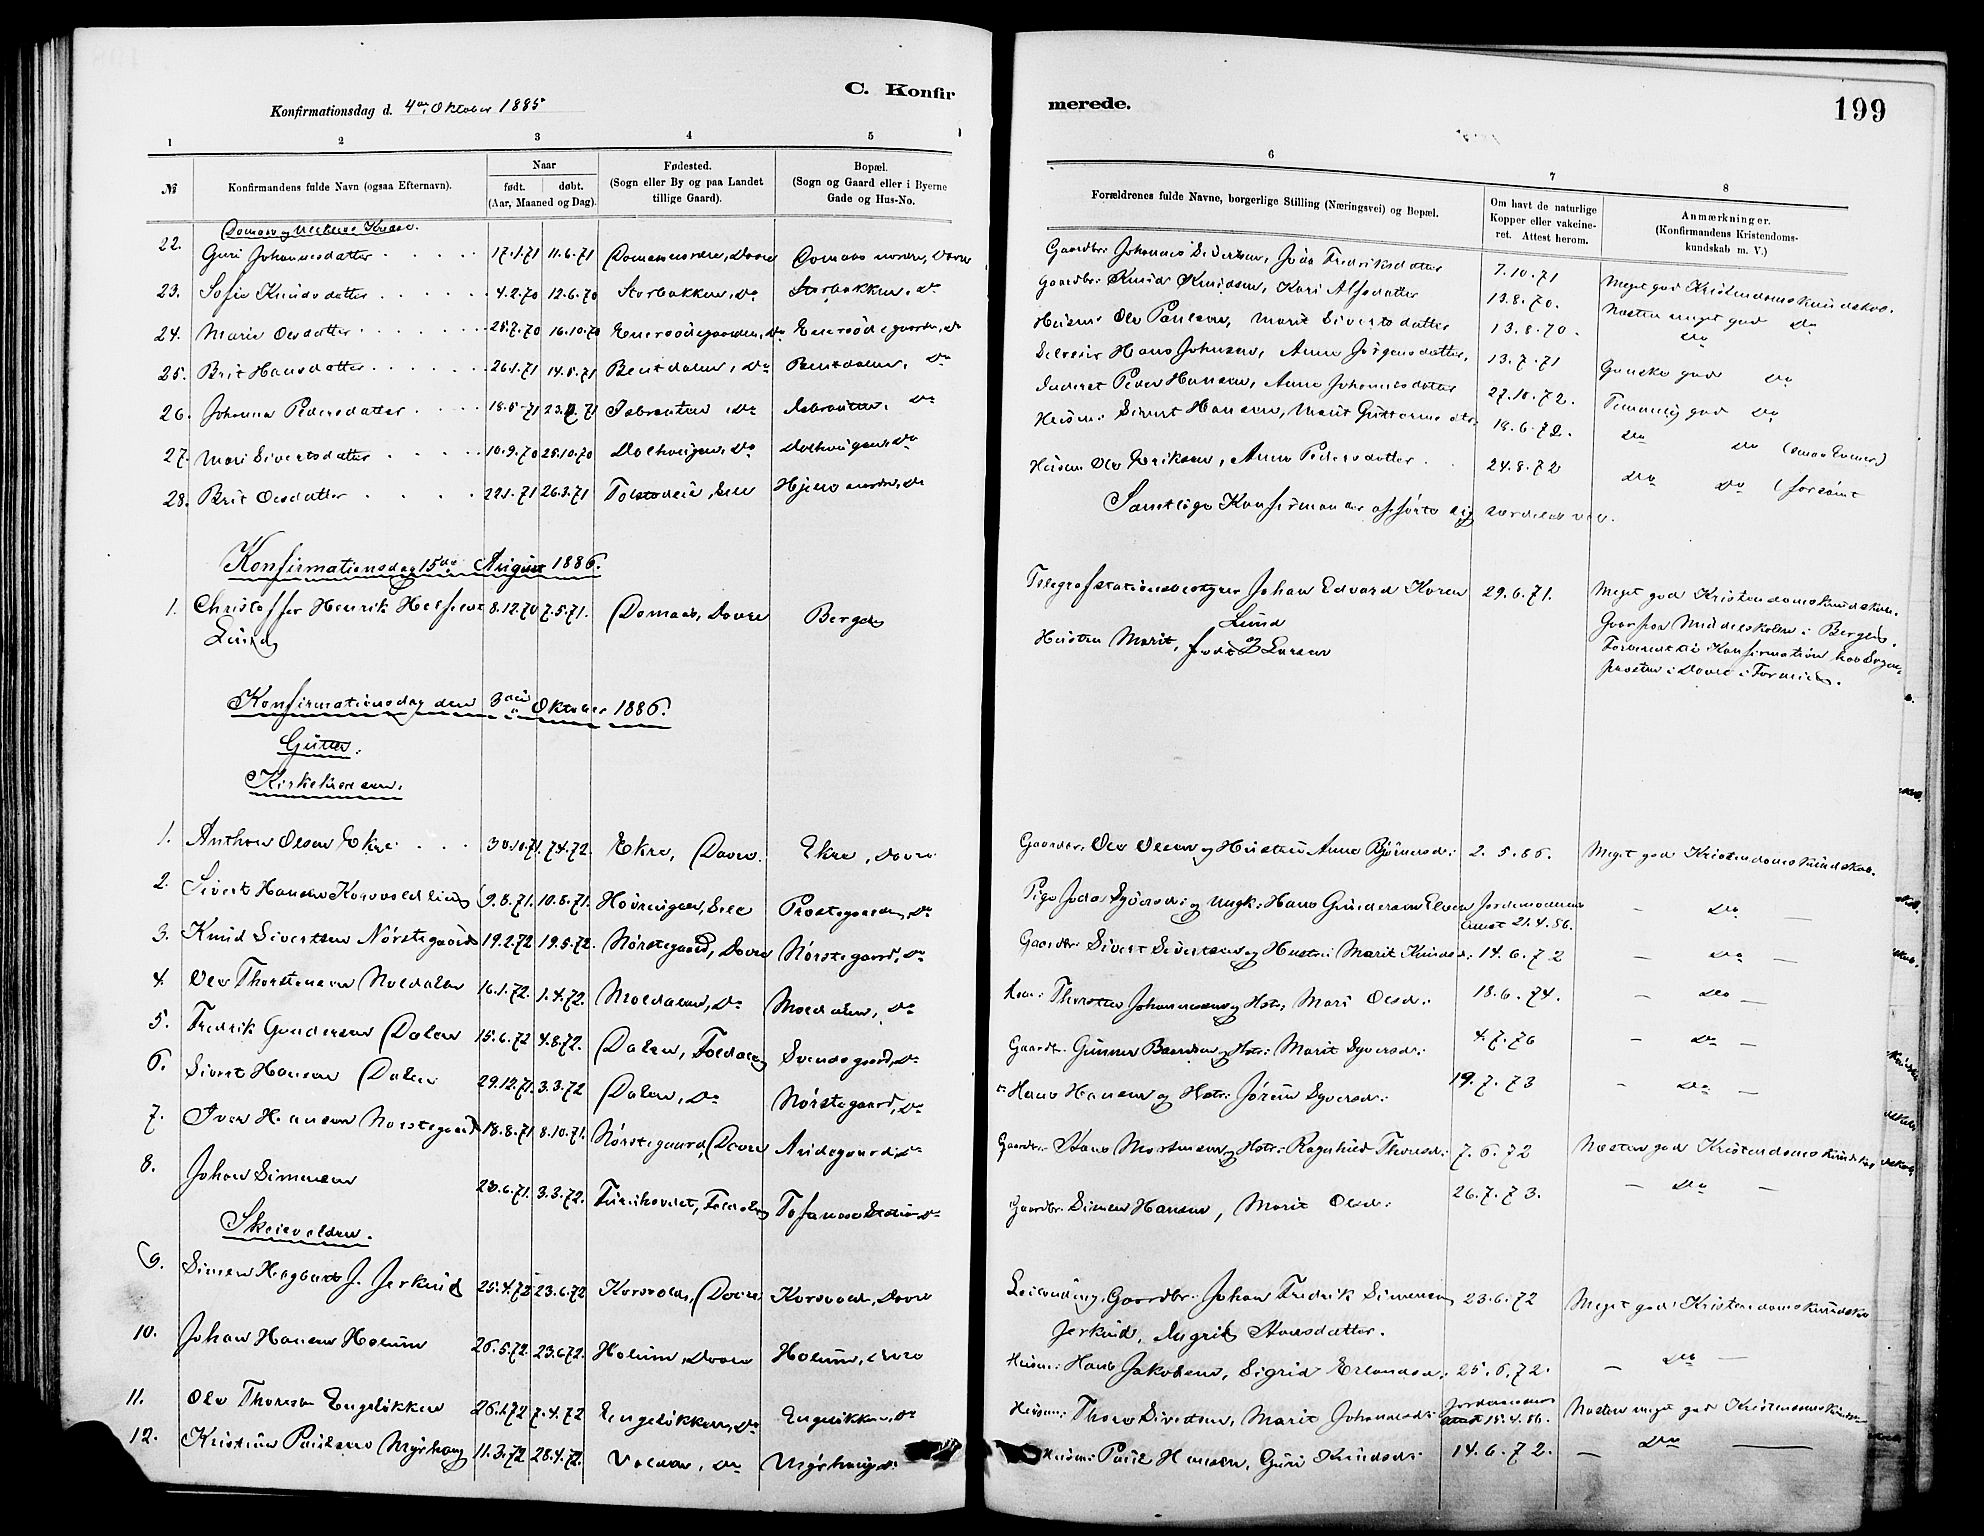 C. Konfirmerede.
199
Konfirmationsdag d. 4de Oktober 1885
1 2 3 4 5 6 7 8
№ Konfirmandens fulde Navn (ogsaa Efternavn).
Naar født. døbt. (Aar, Maaned og Dag).
Fødested. (Sogn eller By og paa Landet tillige Gaard).
Bopæl. (Sogn og Gaard eller i Byerne Gade og Hus-No.
Forældrenes fulde Navne, borgerlige Stilling (Næringsvei) og Bopæl.
Om havt de naturlige Kopper eller vakcineret. Attest herom.
Anmærkninger. (Konfirmandens Kristendomskundskab m. V.)
22. Guri Johannesdatter 17.1.71 11.6.71 Domaas nordre, Dovre Domaas nordre, Dovre Gaardbr: Johannes Sivertsen, Jóda Fredriksdatter 7.10.71 Meget god Kristendomskundskab.
23. Sofie Knudsdatter 4.2.70 12.6.70 Storbakken, Do Storbakken, Do Gaardbr: Knud Knudsen, Kari Alfsdatter 13.8.70. Næsten meget god Do
24. Marie Olsdatter 25.7.70 16.10.70 Do Do Husm: Ole Paulsen, Marit Sivertsdatter 13.8.70. Do
25. Brit Hansdatter 26.1.71 14.5.71 Bentdalen, Do Bentdalen, Do Hans Johnsen, Anne Jørgensdatter, 13.7.71 Ganske god Do
26. Johanna Pedersdatter 18.5.71 Do Do Inderst Peder Hansen, Anne Johannesdatter 27.10.72. Temmelig god Do
27. Mari Sivertsdatter 10.9.70 25.10.70 Do Do Husm: Sivert Hansen, Marit 18.6.72. Do Do
28. Brit Olsdatter 22.1.71 26.3.71 Hjelle nordre, Do Husm Ole Eriksen, Anne Pedersdatter 24.8.72 Do Do (forsømt
Samtlige Konfirmander opførte sig særdeles vel.
Konfirmationsdag 15de August 1886.
1. Christoffer Henrik 8.12.70 7.5.71. Domaas, Dovre Bergen Telegrafstationsbestyrer Johan Edvard Koren 29.6.71. Meget god Kristendomskundskab.
Lund Lund
Hustru Marit, født Larsen
Konfirmationsdag den 3die Oktober 1886.
Gutter.
1. Anthon Olsen Ekre 30.10.71. 7.4.72. Ekre, Dovre. Ekre, Dovre Gaardbr. Ole Olsen og Hustru Anne Bjørnersd: 2.5.86. Meget god Kristendomskundskab.
2. Sivert Hansen Korsvoldlien 9.8.71. 10.8.71. Høvringen, Sell Prestegaarden, Do Pige Joda Syversd: og Ungk: Hans Gundersen Jordemoderens Attest 21.4.86. — Do —
3. Knud Sivertsen Nørstegaard 19.2.72 19.5.72. Nørstegaard, Dovre Nørstegaard, Do Gaardbr: Sivert Sivertsen og Hustru: Marit Knudsd: 14.6.72 — Do —
4. Ole Thorstensen Moldalen 16.1.72. 1.4.72. Moldalen, Do Moldalen, Do Husm: Thorsten Johannesen og Hstr: Mari Olsd: 18.6.74. — Do —
5. Fredrik Gundersen Dalen 15.6.72 4.8.72. Dalen, Foldalen Svendsgaard, Do Gaardbr. Gunner Baardsen og Hstr: Marit Syversd: 4.7.76 — Do —
6. Sivert Hansen Dalen 29.12.71. 3.3.72 Dalen, Do Nørstegaard, Do Hans Hansen og Hstr: Jørun Syversd: 19.7.73 — Do —
7. Iver Hansen Nørstegaard 18.8.71 8.10.71. Nørstegaard, Dovre Andegaard, Do Gaardbr: Hans Mortensen og Hstr: Ragnhild Thoresd: 7.6.72 Næsten god Kristendomskundskab
8. Johan Simensen 23.6.71. 3.3.72. Furuhovdet, Foldalen Tofsmoe Station, Do Gaardbr: Simen Hansen, Marit Olsd: 26.7.73. — Do —
9. Simen Hagbart J. Jerkind 25.4.72 23.6.72 Korsvold, Dovre Korsvold, Dovre Leilænding, Gaardbr: Johan Fredrik Simensen 23.6.72 Meget god Kristendomskundskab
Jerkind, Ingrid Hansdatter.
10. Johan Hansen Holum 26.5.72. 23.6.72. Holum, Dovre Holum, Dovre Husm: Hans Jakobsen, Sigrid Erlandsd: 25.6.72. — Do —
11. Ole Thoresen Engeløkken 26.1.72 7.4.72 Engeløkken, Do Engeløkken, Do Husm: Thore Sivertsen, Marit Johannesd: Jordemoderens Attest 15.4.86. Næsten meget god Kristendomskundskab
12. Kristian Paulsen Myrhaug 11.3.72 28.4.72. Volden, Do Myrhaug, Do Husm: Paul Hansen, Guri Knudsd: 14.6.72. — Do —